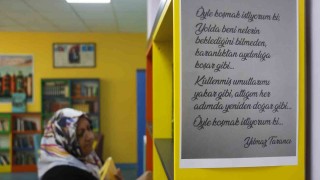 Öyle koşmak istiyorum ki...
Yolda beni nelerin
beklediğini bilmeden,
karanlıktan aydınlığa
koşar gibi...
Küllenmiş umutlarımı
yakar gibi, attığım her
adımda yeniden doğar gibi...
Öyle koşmak istiyorum ki...
Yılmaz Turancı